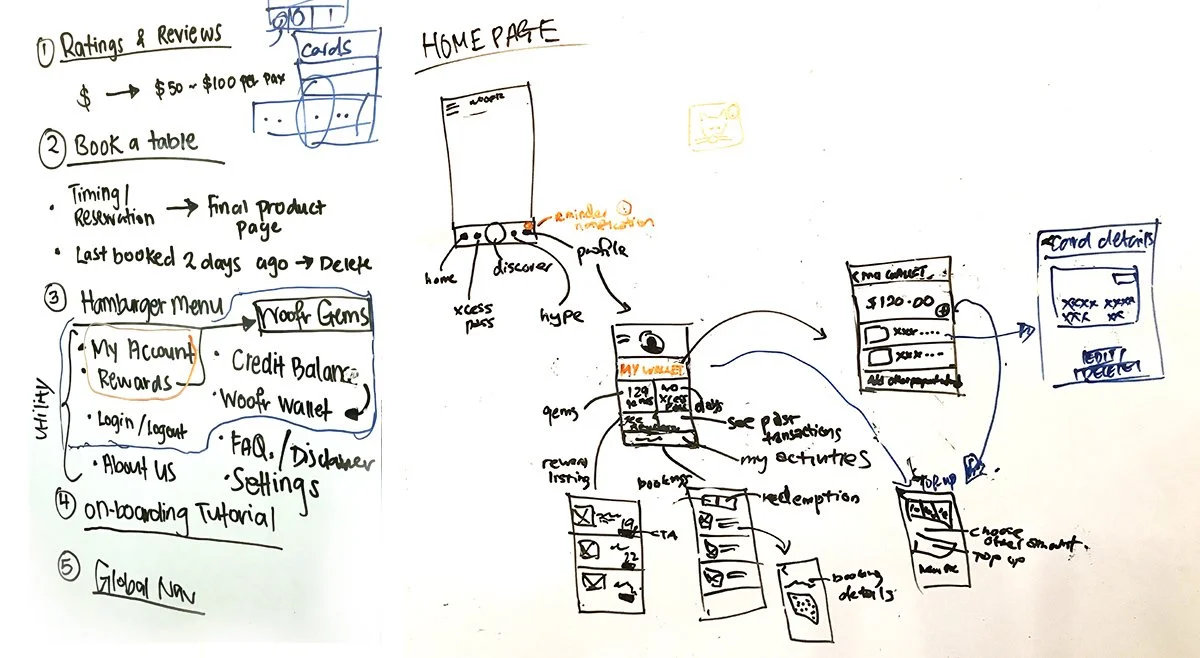 1 Ratings & Reviews
$ → $50 ~ $100 per pax
cards
2 Book a table
Timing/
Reservation → Final product
page
Last booked 2 days ago → Delete
3 Hamburger menu
Woofr Gems
My Account
Rewards
Credit Balance
Woofr Wallet
Login/Logout
FAQ./Disclaimer
About US
Settings
utility
4 on-boarding Tutorial
5 Global Nav
HOMEPAGE
reminder
notification
home
xcess
pass
discover
hype
profile
MY WALLET
129
gems
days
see past
transactions
my activities
reward
listing
19
22
CTA
bookings
redemption
booking
details
< MY WALLET
$120.00
xxx ....
xxx ....
Card details
xxxx xxxx
xxx xx
EDIT/
DELETE
TOP UP
choose
other amount.
Top up